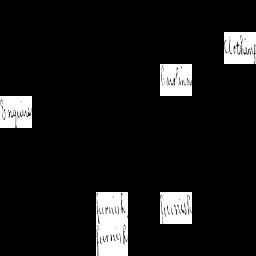 Clothing
Carolina
Enquire
furnish furnish
furnish